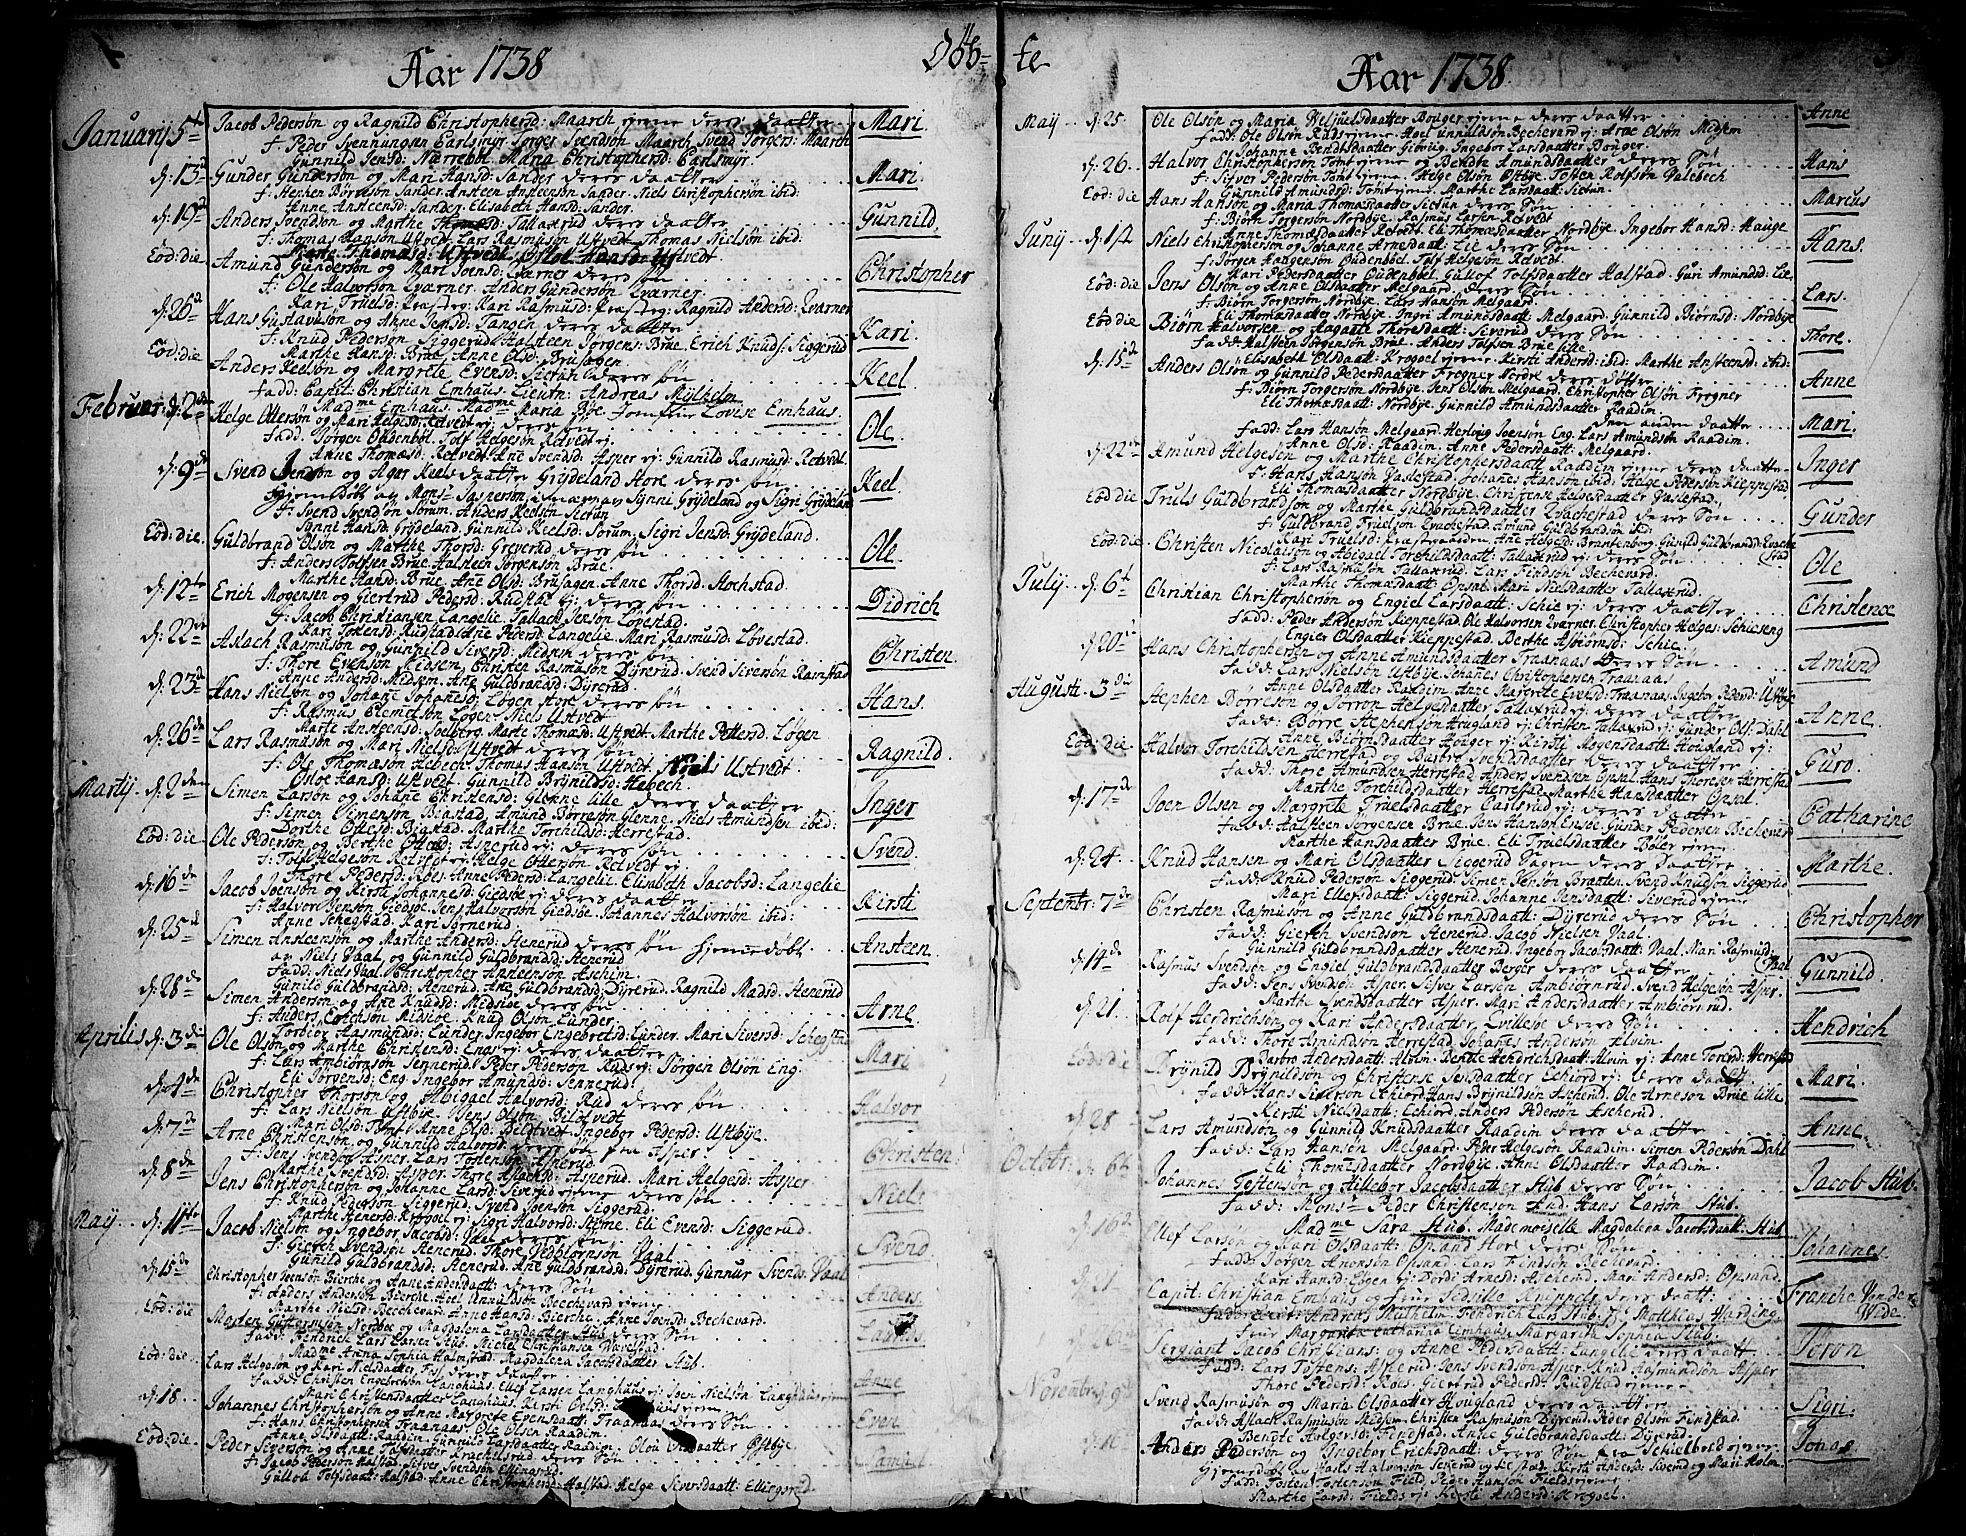 Aar 1738
Januarij 5te Jacob Pedersøn og Ragnild Christophersd: Maarch ejerne deres daatter Mari.
f: Peder Svennungsøn Carlsmyr Torger Svendsøn Maarch Svend Torgers: Maarch
Gunnild Jensd: Nærrebøl. Maria Christophersd: Carlsmyr.
d: 13de Gunder Gundersøn og Mari Hansd: Sander deres daatter Mari.
f: Stephen Børresøn Sander Ansteen Ansteensøn Sander. Niels Christophersøn ibid:
Anne Ansteensd: Sander. Elisabeth Hansd: Sander.
d: 19de Anders Svendsøn og Marthe Thomasd: Tallaxrud deres daatter Gunnild.
f: Thomas Hansøn Ustvedt Lars Rasmusøn Ustvedt Thomas Nielsøn ibid.
Marte Thomasd: Ustvedt. Osloe Hansd: Ustvedt
Eod: die Amund Gundersøn og Mari Joensd: Qværner deres søn Christopher
f: Ole Halvorsøn Qværner Anders Gundersøn Qværner
Kari Truelsd: Kari Rasmusd: Ragnild Andersd: Qværner
d: 26de Hans Gustavusøn og Anne Jensd: Tangen deres daatter Kari.
f: Knud Pedersøn Siggerud Halsteen Jørgens: Brue. Erich Knuds: Siggerud
Marthe Hansd: Brue, Anne Olsd: Brusagen
Eod: die Anders Keelsøn og Margrete Evensd: Sictun deres søn Keel
fadd: Capit: Christian Emhaus. Lieutn: Andreas Mylhelm
Madme Emhaus. Madme Maria Bye. Jomfrue Lovise Emhaus.
Februar: d: 2den Helge Ottersøn og Mari Helgesd: Retvedt ej: deres søn Ole
fadd: Jørgen Oudenbøl. Tolf Helgesøn Retvedt ej:
Anne Thomæsd: Retvedt Ane Svendsd: Asper ej: Gunnild Rasmusd: Retvedt.
d: 9de Svend Jensøn og Ager Keels daatter Grydeland Store deres søn Keel
hjemdøbt af Mons: Jaspersøn Synni Grydeland og Sigri Grydeland
f: Svend Svendsøn Sorum. Anders Keelsøn Sictun
Synne Hansd: Grydeland. Gunnild Keelsd: Sorum. Sigri Jensd: Grydeland.
Eod: die. Guldbrand Olsøn og Marthe Thorsd: Greverud deres søn Ole
f: Anders Tolfsen Brue Halsteen Sørgen Brue.
Marthe Hansd: Brue, Ane Olsd: Brusagen. Anne Thorsd: Hochstad.
d: 12te Erich Mogensen og Giertrud Pedersd: Rudstad ej: deres søn Didrich
f: Jacob Christiansen Langelie Tallach Jensøn Løvestad.
Kari Joensd: Rudstad Ane Pedersd: Langelie Mari Rasmusd: Løvestad.
d: 22de Aslach Rasmusøn og Gunnild Siversd: Midsem deres søn Christen.
f: Thore Evensøn Midsen, Christen Rasmusøn Dyrerud. Svend Siversøn Ramstad
Anne Andersd: Midsem. Ane Guldbrandsd: Dyrerud.
d: 23de Hans Nielsøn og Johane Johanesd: Løgen Store deres søn Hans.
f: Rasmus Clemetsøn Løgen Niels Ustvedt
Marte Ansteensd: Soelberg Marte Thomæsd: Ustvedt Marthe Pettersd: Løgen
d: 26de Lars Rasmusøn og Mari Nielsd: Ustvedt deres søn Ragnild
f: Ole Thomæsøn Hebech Thomas Hansen Ustvedt Niels Ustvedt
Osloe Hansd: Ustvedt. Gunnild Brynildsd: Hebech.
Martij d: 2den Simen Larsøn og Johane Christensd: Glenne lille deres daatter Inger
f: Simen Simensøn Biastad Amund Børresøn Glenne. Niels Amundsen ibid:
Dorthe Ottesd: Bigstad Marthe Torchildsd: Herrestad.
Eod: die Ole Pedersøn og Berthe Ottesd: Asperud ej: deres søn Svend
f: Tolf Helgesøn Retvedt ej: Helge Ottersøn Retvedt ej:
Thore Pedersd: Roes. Anne Pedersd: Langelie Elisabeth Jacobsd: Langelie
d: 16de Jacob Joensøn og Kirsti Johannesd: Giedsøe ej: deres daatter Kirsti
f: Halvor Jensøn Giedsøe Jens Halvorsøn Giedsøe. Johannes Halvorsøn ibid:
Anne Schegstad Kari Sørnerud.
d: 25de Simen Ansteensøn og Marthe Andersd: Stenerud deres søn hjemmedøbt Ansteen
av Niels Vaal, og Gunnild Guldbrandsd: Stenerud
fadd: Niels Vaal Christopher Anneensøn Aschim.
Gunild Guldbrandsd: Stenerud. Ane Guldbrandsd: Dyrerud. Ragnild Madsd: Stenerud
d: 28de Simen Andersøn og Ane Knudsd: Midsiøe deres søn Arne
f: Anders Erichsøn Midsiøe. Knud Olsøn Lunder.
Torbiør Aasmundsd: Lunder Ingebor Engebretsd: Lunder. Mari Siversd: Scheggstad
Aprilis d: 3die Ole Olsøn og Marthe Christensd: Eng ej: deres daatter Mari
f: Lars Ambiørnsøn Sennerud: Peder Pedersøn Rud ej: Jørgen Olsøn Eng.
Eli Jørgensd: Eng. Ingebor Amundsd: Sennerud.
d: 4de Christopher Thorsøn og Abigael Halvorsd: Rud deres søn Halvor
f: Lars Nielsøn Ustbye. Jens Olsøn Bilotvedt
Mari Olsd: Tømt. Anne Olsd: Beldtvedt Ingebor Pedersd: Ustbye.
d: 7de Arne Christensøn og Gunnild Halvorsd: deres søn fra Asper Christen.
f: Jens Svendsøn Asper. Lars Tostensøn Asperud
Marthe Svendsd: Asper. Thore Aslachsd: Asperud. Mari Helgesd: Asper
d: 8de Jens Christophersøn og Johanne Larsd: Siverud ejerne deres søn Niels
f: Knud Pedersøn Siggerud. Svend Joensøn Siggerud.
Marthe Stenersd: Krogoel ej: Sigri Halvorsd: Steme. Eli Evensd: Siggerud.
May d: 11te Jacob Nielsøn og Ingebor Jacobsd: Vaal deres søn Svend
f: Gierth Svendsøn Stenerud. Thore Vedbiørnsøn Vaal
Gunild Guldbrandsd: Stenerud. Ane Guldbrandsd: Dyrerud. Gunnur Svends: Vaal
d: 15de Christopher Joensøn Bierche og Anne Andersdaatt: deres Søn Anders
f: Anders Andersøn Bierche. Hoel Unnuldsøn Bechevard ejerne
Marthe Nielsd: Bechevard. Anne Hansd: Bierche. Ane Soensd: Bechevard.
Eod: die Morten Guttormsøn Nordbye og Magdalena Larsdaatter Stub. deres Søn Laurits
fadd: Fendrich Lars Larsen Stub. Michel Christiansen Wævestad
Madme Anna Sophia Halmstad. Magdalena Jacobsdaatter Stub.
Eod: die Lars Helgesøn og Kari Nielsdaatter deres daatter Anne
fadd: Christen Engebrechtsøn Langhuus. Ellef Larsen Langhuus ej: Joen Nielsøn Langhuus ejerne
d: 18 Johannes Christophersøn og Anne Margrete Evensdaatt: Traanaas deres Søn Even
f: Hans Christophersen Traanaas Ole Olsen Raadim
Anne Olsdaatt: Raadim Gunnild Larsdaatter Raadim. Olou Olsdaatter Ustbye
Eod: die Peder Siversøn og Anne Tolfsdaatter Krachelsrud deres Søn Samuel
f: Jacob Pedersøn Halstad. Silver Svendsøn Ellingsrud
Gulloú Tolfsdaatt: Halstad. Anne Christopherd: Halstad Helge Siversdaatt: Ellingsrud.
Døb= te
Aar 1738
May d: 25. Ole Olsøn og Maria Neljuelsdaatter Bouger ejerne deres daatter Anne
fadd: Ole Olsøn Ruds ejerne: Hoel Unnuldsøn Bechevard ej: Arne Olsøn Midsem
Johanne Bendtsdaatter Giövüg. Ingebor Larsdaatter Bouger.
d: 26. Halvor Christophersøn Tomt ejerne og Bendte Amundsdaatter deres Søn Hans
f: Silver Pedersøn Tomt ejerne. Helge Olsøn Østbye. Tosten Rolfsøn Valebech
Gunnild Amundsd: Tomt ejerne. Marthe Larsdaatt: Sictun.
Eod: die Hans Hansøn og Maria Thomasdaatter Sictun deres Søn Marcus
f: Biørn Torgersøn Nordbye. Rasmus Larsen Retvedt
Anne Thomæsdaatter Retvedt Eli Thomæsdaatter Nordbye. Ingebor Hansd: Hauge
Junij d: 1ste Niels Christophersøn og Johanne Arnesdaatt: Lie deres Søn Hans.
f: Sørgen Aagensøn Oudenbøel. Tolf Helgesøn Retvedt
Kari Pedersdaatter Oudenbøel Gulloú Tolfsdaatter Halstad. Guri Amundsd: Lie
Eod: die Jens Olsøn og Anne Olsdaatter Melgaard. deres Søn Lars.
f: Biørn Torgersøn Nordbye. Lars Hansøn Melgaard
Eli Thomæsdaatter Nordbye. Ingri Amundsdaatt: Melgaard. Gunnild Biørnsd: Nordbye
Eod: die Biørn Halvorsen og Aagaate Thoresdaatt: Siverud deres Søn Thore.
fadd: Halsteen Jørgensøn Brue. Anders Tolfsen Brue lille
Elisabeth Olsdaatt: Krogoel ejerne. Kirsti Andersd: ibid: Marthe Ansteensd: ibid:
d: 15de Anders Olsøn og Gunnild Pedersdaatter Fregner Nordre deres døtter Anne
f: Biørn Torgersøn Nordbye. Jens Olsøn Melgaard. Christopher Olsøn Fregner
Eli Thomæsdaatt: Nordbye. Gunnild Amundsdaatter Raadim.
Den anden daatter Mari.
fadd: Lars Hansøn Melgaard. Herlvig Joensøn Eng. Lars Amundsøn Raadim.
Anne Olsd: Raadim. Anne Pedersdaatt: Melgaard.
d: 22de Amund Helgesøn og Marthe Christophersdaatt: Raadim ejerne deres daatter Inger
f: Hans Hansøn Vaslestad. Johanes Hansøn ibid: Helge Pedersøn Kieppestad
Eli Thomæsdaatter Nordbye. Christense Helgesdaatter Vaslestad.
Eod: die Truls Guldbrandsøn og Marthe Guldbrandsdaatter Qvachestad deres Søn Gunder
f: Guldbrand Truelsøn Qvachestad Amund Guldbrandsøn ibid
Kari Truelsd: Præstegaarden. Ane Helgesd: Brantenborg. Gunild Guldbrandsd: Qvachestad
Eod: die Christen Nicolaisøn og Abigael Torchildsdaatt: Tallaxrud ej: deres Søn Ole
f: Lars Rasmusøn Tallaxrud. Lars Findsøn Bechevard.
Marthe Thomæsdaatt: Opsal. Mari Nielsdaatter Tallaxrud.
Julij d: 6te Christian Christophersøn og Engiel Larsdaatt: Schie ej: deres daatter Christence
fadd: Peder Andersøn Kieppestad Ole Halvorsen Qværner. Christopher Helges: Schieseng
Engier Olsdaatter Kieppestad. Berthe Asbiørnsd: Schie.
d: 20de Hans Christophersen og Anne Amundsdaatter Traanaas deres Søn Amund
fadd: Lars Nielsøn Ustbye Johanes Christophersen Traanaas
Anne Olsdaatter Raadim. Anne Margrete Evensd: Traanaas. Ingebor Pedersd: Ustbye
Augusti 3die Stephen Børresøn og Sørron Helgesdaatter Tallaxrud ej: deres daatter Anne.
fadd: Børre Stephensøn Hougland ej: Christen Tallaxrud ej: Gunder Ols: Dahl
Anne Biørnsdaatter Houger ej: Kirsti Mogensdaatt: Hougland ej:
Eod: die Halvor Torchildsen Herrestad og Barbro Svendsdaatter deres daatter Guro.
fadd: Thore Amundsen Herrestad Anders Svendsen Opsal Hans Thoresen Herrestad
Marthe Torchildsdaatt: Herrestad. Marthe Hansdaatter Opsal.
d: 17de Joen Olsen og Margrete Truelsdaatter Carlsrud ej: deres daatter Catharine
fadd: Halsteen Jørgensen Brue. Jens Hansøn Ensøe Gunder Pedersen Bechevard
Marthe Hansdaatter Brue. Eli Truelsdaatter Bøler ejerne.
d: 24. Knud Hansen og Mari Olsdaatter Siggerud Sagen deres daatter Marthe.
fadd: Knud Pedersøn Siggerud. Simen Jensøn Braaten. Svend Knudsøn Siggerud
Mari Ellefsdaatt: Siggerud. Johanne Jensdaatt: Siverud ejerne
Septembr: 7de Christen Rasmusøn og Anne Guldbrandsdaatt: Dyrerud deres Søn Christopher
fadd: Gierth Svendsøn Stenerud. Jacob Nielsen Vaal.
Gunnild Guldbrandsdaatter Stenerud. Ingebor Jacobsdaatt: Vaal. Mari Rasmusd: Vaal
d: 14de Rasmus Svendsen og Engiel Guldbrandsdaatter Berger deres daatter Gunnild
fadd: Jens Svendsøn Asper, Silver Larsen Ambiørnrud. Svend Helgesøn Asper.
Marthe Svendsdaatter Asper. Mari Andersdaatter Ambiørnrud.
d: 21. Rolf Hendrichsøn og Kari Andersdaatter Qvillesøe deres Søn Hendrich
fadd: Thore Amundsøn Herrestad Johanes Andersøn Alvim.
Barbro Andersdaatter Holm. Bendte Hendrichsdaatt: Alvim ej: Anne Toresd: Herrestad
Eod: die Brynild Brynildsøn og Christense Jensdaatter Echiord ej: deres daatt: Mari.
fadd: Hans Siversøn Echiord. Hans Brynildsøn Ascherud. Ole Arnesøn Brue lille
Kirsti Nielsdaatt: Echiord. Anders Pedersøn Ascherud.
d: 28 Lars Amundsøn og Gunnild Knudsdaatter Raadim deres daatter Anne.
fadd: Lars Hansøn Melgaard Peder Helgesøn Raadim. Simen Pedersøn Dahl
Eli Thomesdaatter Nordbye. Anne Olsdaatter Raadim.
Octobr: d: 6te Johannes Tostensøn og Hillebor Jacobsdaatter Stub deres Søn. Jacob Stub.
fadd: Monsr Peder Christensen Lund. Hans Larsøn Stub.
Madme Sara Stub. Mademoiselle Magdalena Jacobsdaatt: Stub
d: 16de Ellef Larsøn og Kari Olsdaatt: Opsand Store deres Søn Johannes.
fadd: Jørgen Aronsøn Opsand. Lars Findsøn Bechevard.
Kari Hansd: Løgen ej: Tordi Arnesd: Ascherud. Mari Andersd: Opsand.
d: 21 Capit: Christian Emhaus og Frue Sedsille Knippels deres Søn Franche Vonder Wide
fadd: Andreas Mulhelm Fendrich Lars Stub. Mathias Harding
Frue Margareta Catharina Emhaus. Margareth Sophia Stub.
Sergiant Jacob Christians: og Anne Pedersdaatt: Langelie deres daatt: Søron
fadd: Lars Tostens: Asperud. Jens Svendsøn Asper. Knud Aasmundsøn Asper
Thore Pedersd: Roes. Giertrud Pedersd: Rudstad ejerne
Novembr: 9de Svend Rasmusøn og Maria Olsdaatter Hougland deres daatter Sigri.
fadd: Aslack Rasmusøn Midsem. Christen Rasmusøn Dyrerud. Peder Olsøn Findstad.
Bendte Helgesd: Findstad. Anne Guldbrandsdaatt: Dyrerud.
d: 16 Anders Pedersøn og Ingebor Erichsdaatt: deres Søn fra Schielbred ejerne Jonas
Hjemdøbt av Hans Halvorsøn Kirsti Andersd: Siverud og Mari Holm.
fadd: Tosten Tostensøn Field. Peder Hansøn Field ejerne
Marthe Larsd: Field ej: Kirsti Andersd: Krogoel.